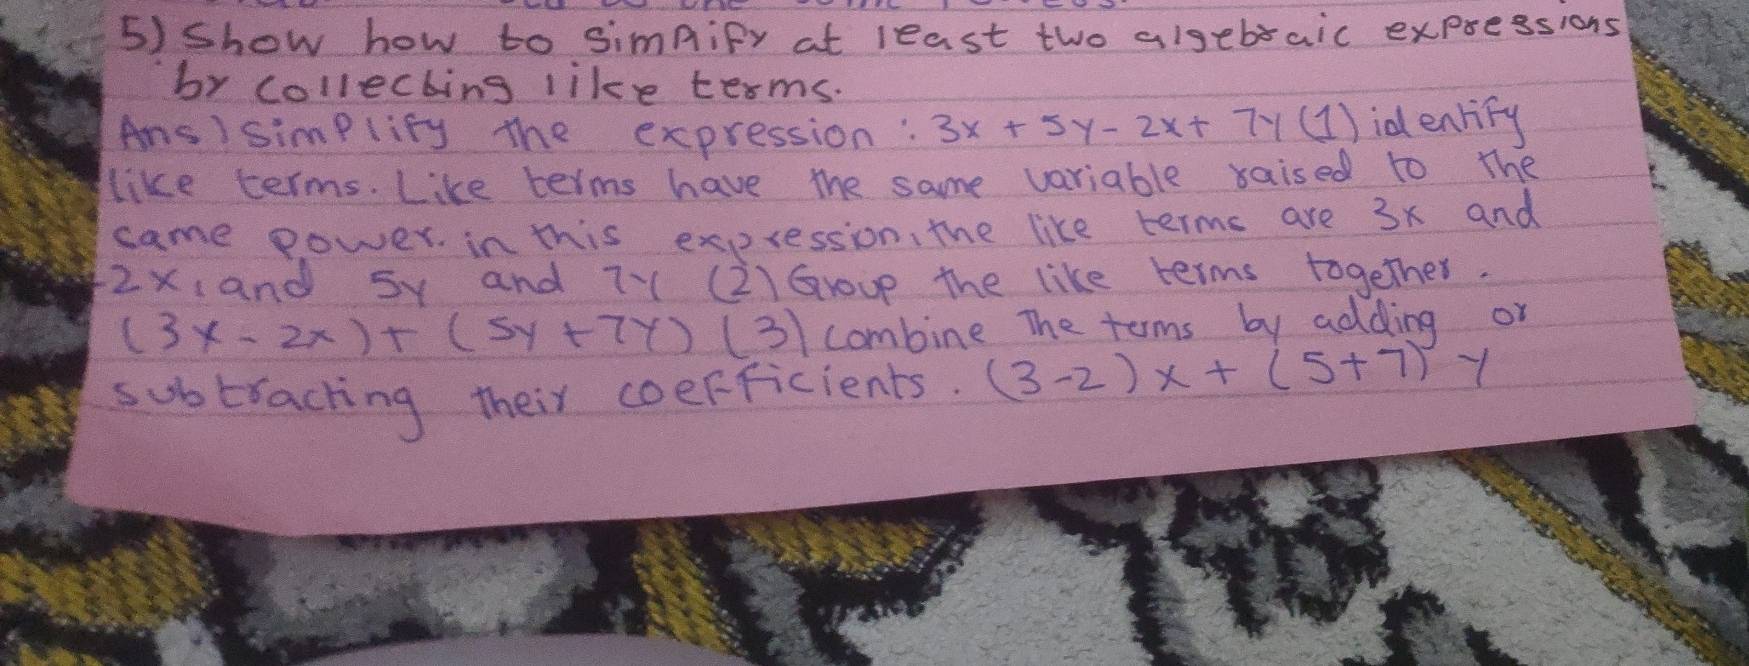 5) Show how to simplify at least two algebraic expressions
by collecting like terms.
Ans) simplify the expression : 3x + 5y - 2x + 7y (1) identify
like terms. Like terms have the same variable raised to the
same power. in this expression, the like terms are 3x and
-2x, and 5y and 7y (2) Group the like terms together.
(3x - 2x) + (5y + 7y) (3) combine The terms by adding or
subtracting their coefficients. (3-2) x + (5+7) y